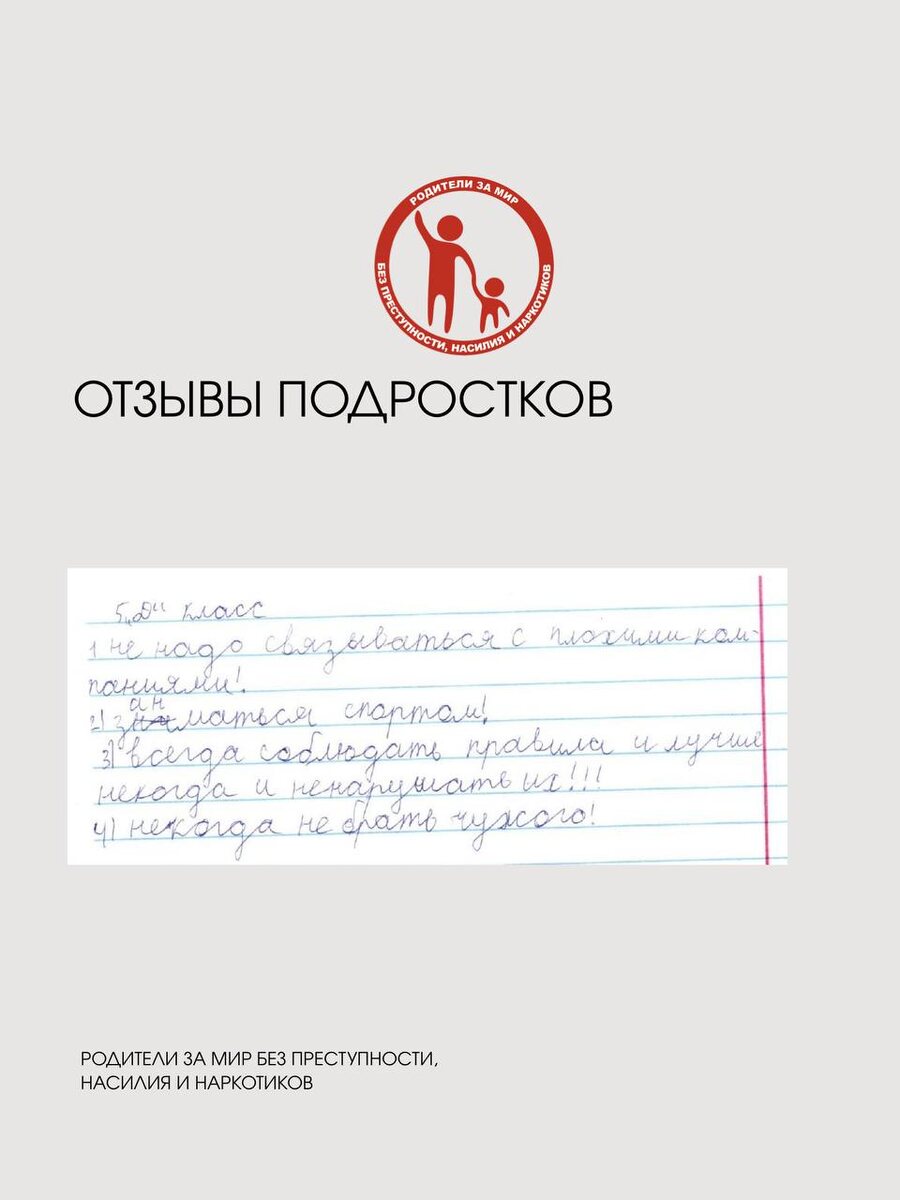 РОДИТЕЛИ ЗА МИР
БЕЗ ПРЕСТУПНОСТИ, НАСИЛИЯ И НАРКОТИКОВ
ОТЗЫВЫ ПОДРОСТКОВ
5 „Д“ класс
1 не надо связываться с плохими ком-
паниями!
2) занматься спортом!
3) всегда соблюдать правила и лучше
некогда и ненарушать их!!!
4) некогда не брать чужого!
РОДИТЕЛИ ЗА МИР БЕЗ ПРЕСТУПНОСТИ,
НАСИЛИЯ И НАРКОТИКОВ